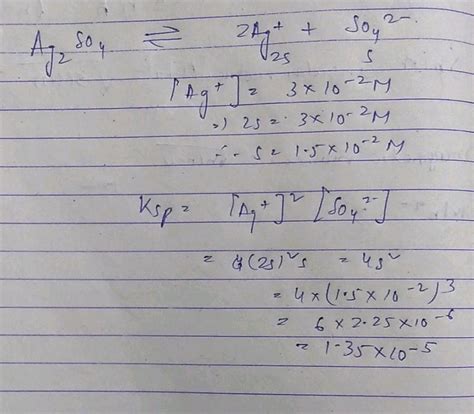 Ag2SO4 ⇌ 2Ag+ + SO4 2-
2s s
[Ag+] = 3×10-2 M
=) 2s = 3×10-2 M
∴ s = 1.5×10-2 M
Ksp = [Ag+]2 [SO4 2-]
= (2s)2s = 4s2
= 4×(1.5×10-2)3
= 6×2.25×10-6
= 1.35×10-5